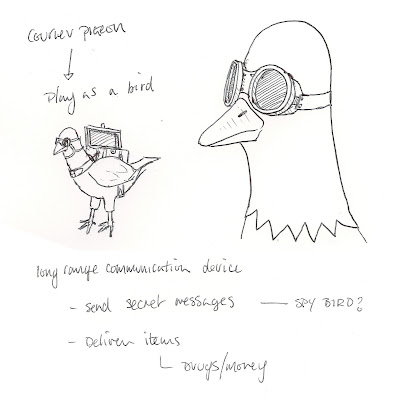 courier pigeon
play as a bird
long range communication device
- send secret messages — SPY BIRD?
- Deliver items
drugs/money